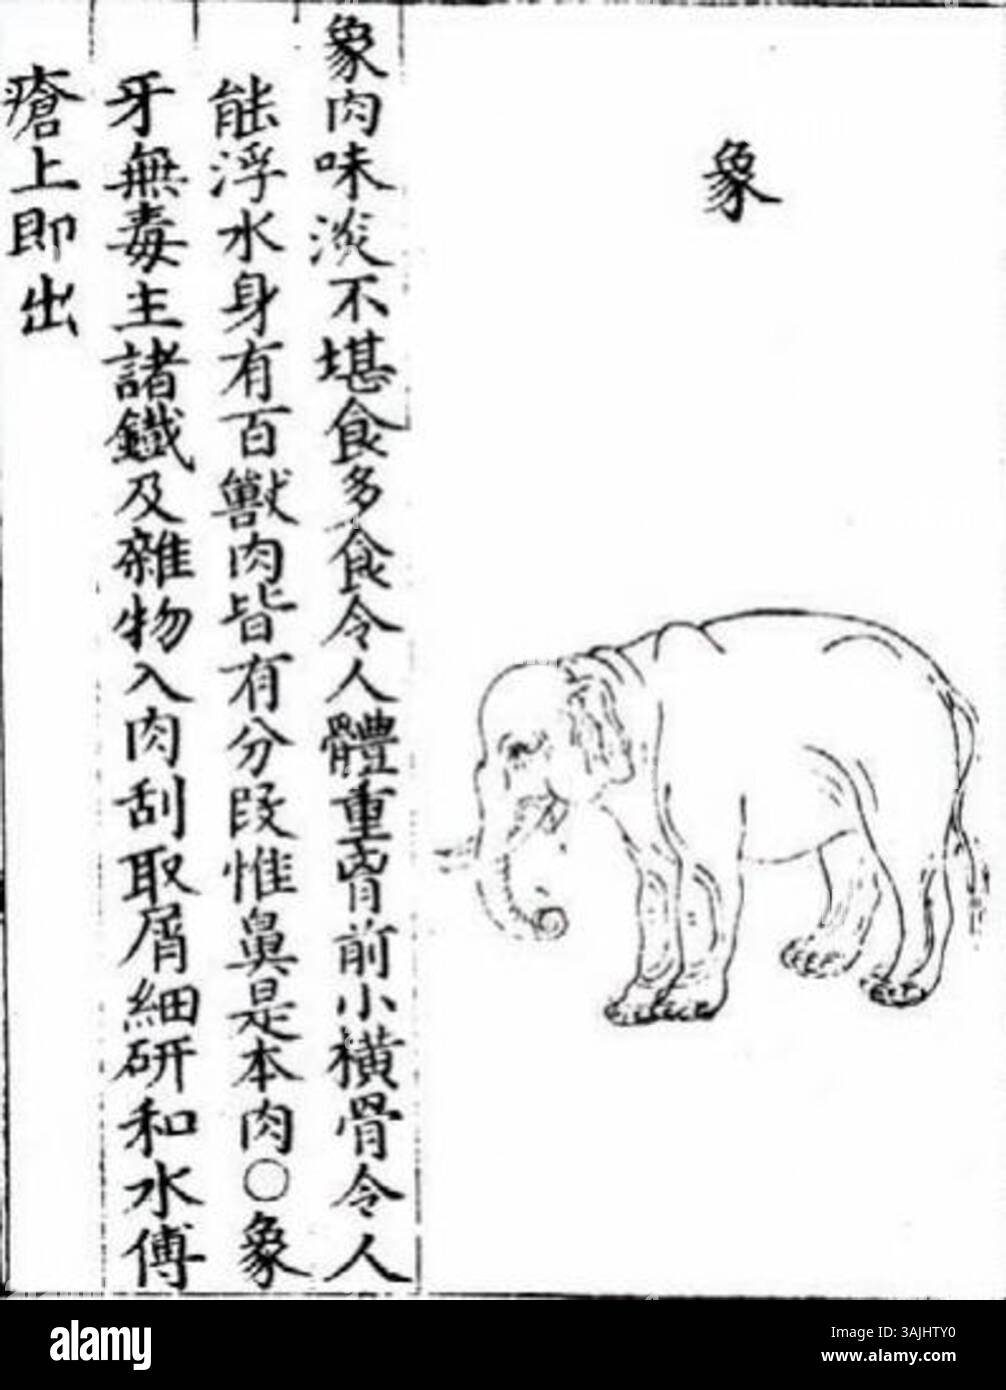 象
象肉味淡不堪食多食令人體重胷前小橫骨令人
能浮水身有百獸肉皆有分段惟鼻是本肉〇象
牙無毒主諸鐵及雜物入肉刮取屑細研和水傅
瘡上即出
alamy
Image ID: 3AJHTY0
www.alamy.com